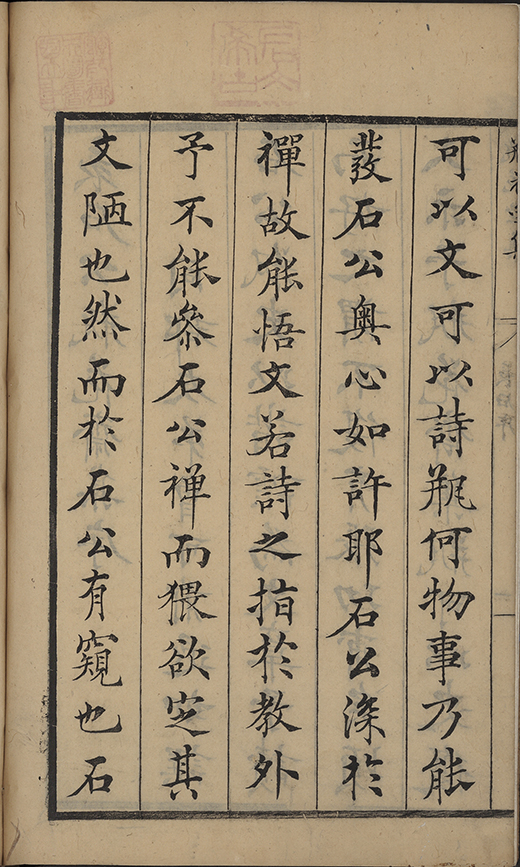 可以文可以詩瓶何物事乃能
發石公奧心如許耶石公深於
禪故能悟文若詩之指於教外
予不能參石公禪而猥欲定其
文陋也然而於石公有窺也石